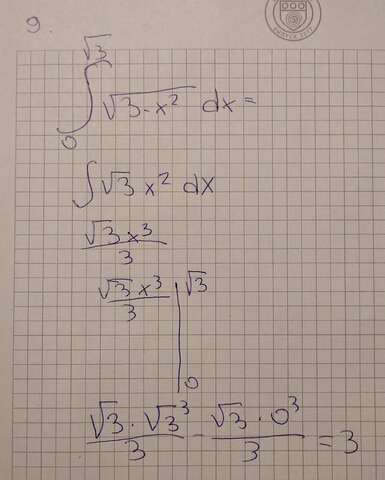 9.
∫₀^√3 √(3-x²) dx =
∫ √3 x² dx
√3 x³ / 3
√3 x³ / 3 |₀^√3
√3 · √3³ / 3 - √3 · 0³ / 3 = 3